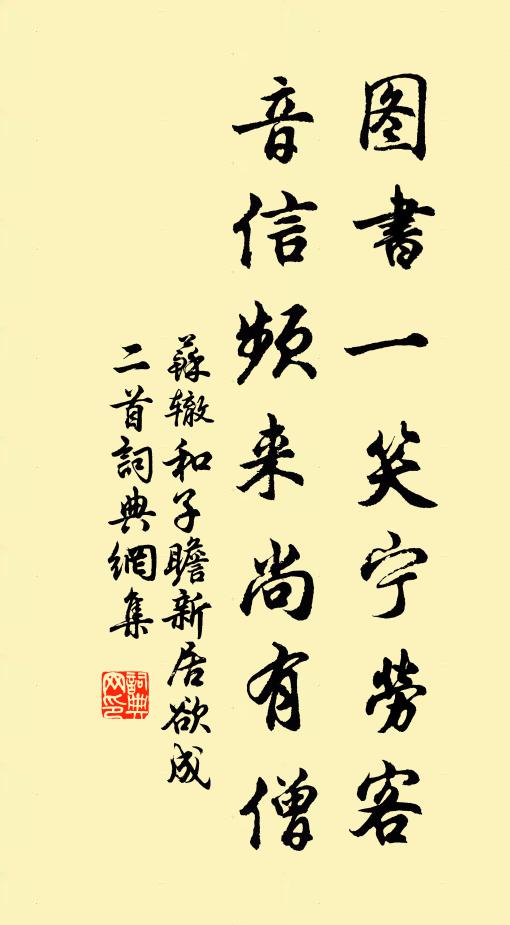 图書一笑宁勞客
音信频来尚有僧
蘇辙和子瞻新居欲成
二首詞典網集
詞典网印